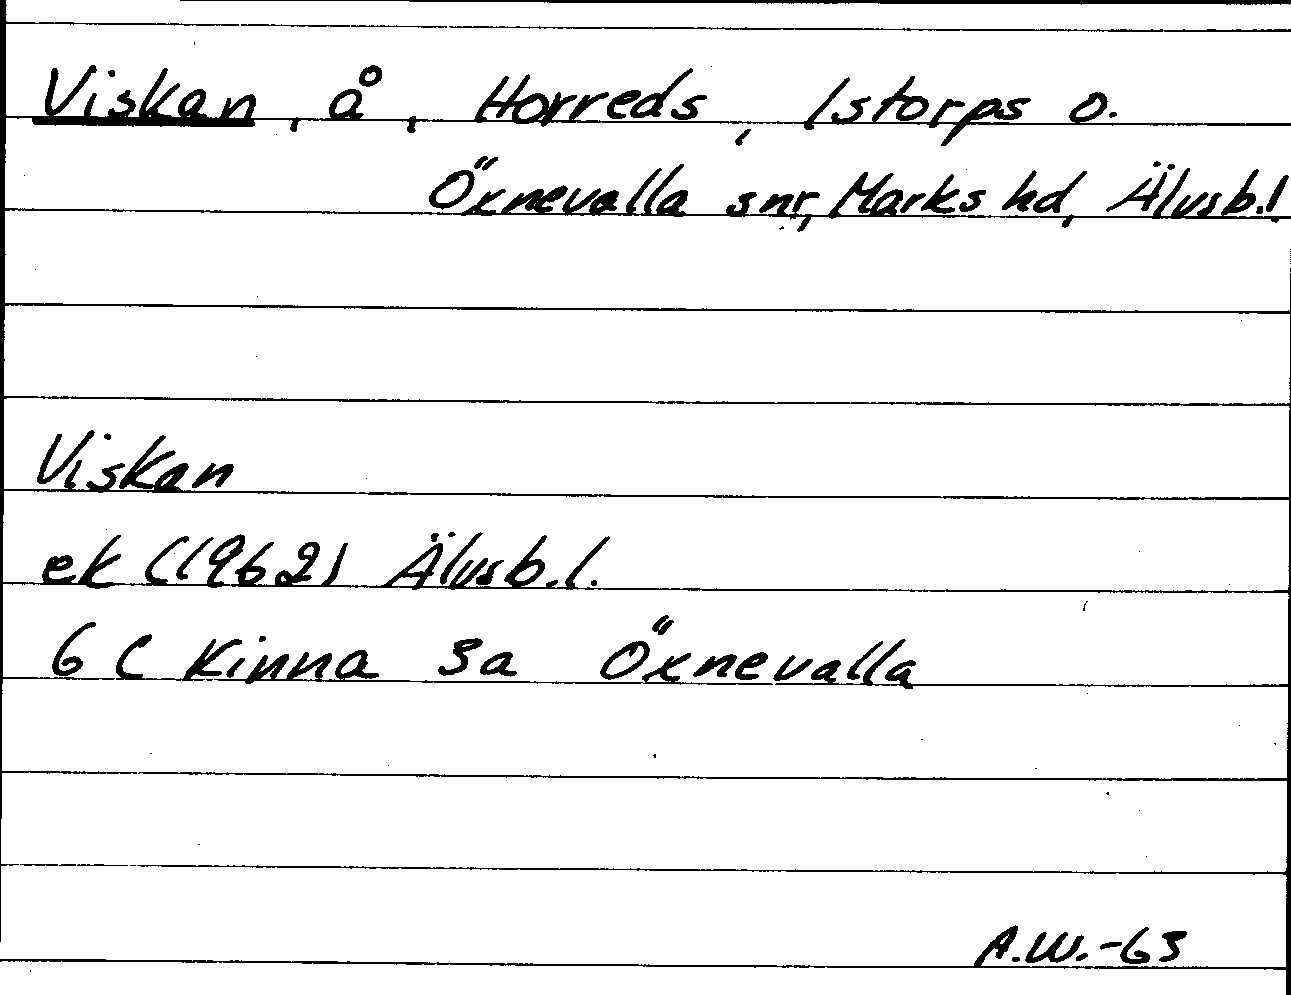 Viskan, å, Horreds, Istorps o.
Öxnevalla snr, Marks hd, Älvsb.l.
Viskan
ek (1962) Älvsb.l.
6 C Kinna 3a Öxnevalla
A.W.-63